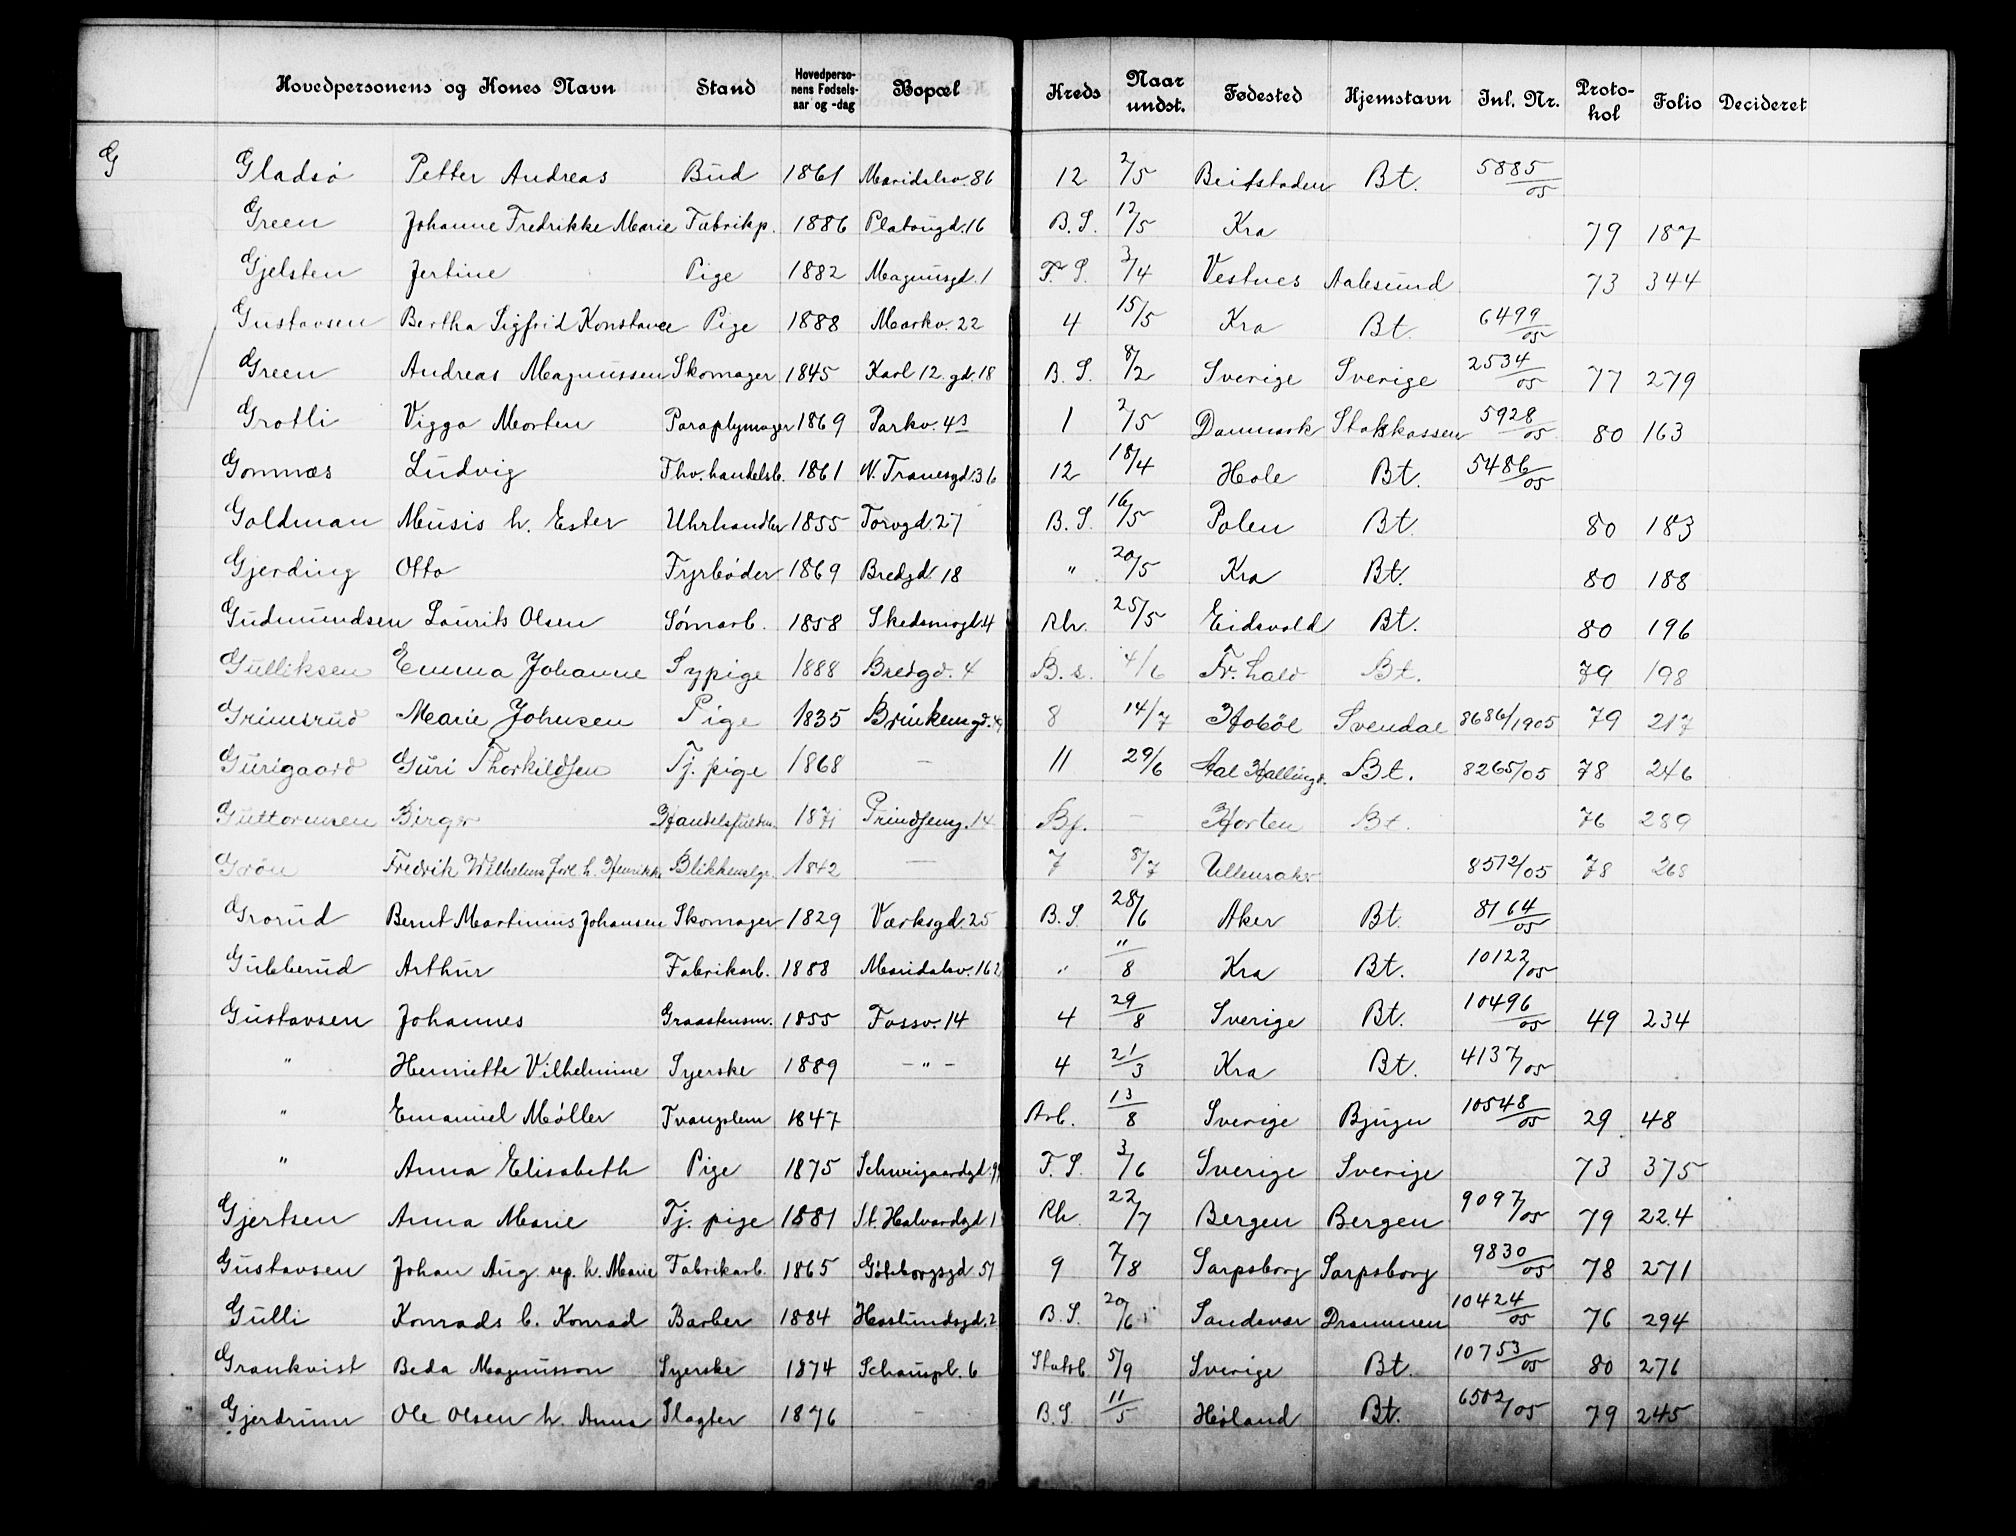 Hovedpersonens og Kones Navn Stand Hovedperso-nens Fødsels-aar og -dag Bopæl Kreds Naar undst. Fødested Hjemstavn Inl. Nr. Proto-kol Folio Decideret
G
Gladsø Petter Andreas Bud 1861 Maridalsv. 86 12 2/5 Beitstaden Bt. 5885/05
Green Johanne Fredrikke Marie Fabrikp. 1886 Platougd. 16 B. S. 12/5 Kra 79 187
Gjelsten Jertine Pige 1882 Magnusgd. 1 F. S. 3/4 Vestnes Aalesund 73 344
Gustavsen Bertha Sigfrid Konstance Pige 1888 Markv. 22 4 15/5 Kra Bt. 6499/05
Green Andreas Magnussen Skomager 1845 Karl 12. gd. 18 B. S. 8/2 Sverige Sverige 2534/05 77 279
Grotli Viggo Morten Paraplymager 1869 Parkv. 4 1 2/5 Danmark Statskassen 5928/05 80 163
Gomnæs Ludvig Fhv. handelsb. 1861 N. Tranesgd. 36 12 18/4 Hole Bt. 5486/05
Goldman Musis h. Ester Uhrhandler 1855 Torvgd. 27 B. S. 16/5 Polen Bt. 80 183
Gjerding Otto Fyrbøder 1869 Bredgd. 18 " 20/5 Kra Bt. 80 188
Gudmundsen Laurits Olsen Sømarb. 1858 Skedsmogd. 4 Rh. 25/5 Eidsvold Bt. 80 196
Gulliksen Emma Johanne Sypige 1888 Bredgd. 4 B. s. 4/6 Fr. hald Bt. 79 198
Grimsrud Marie Johnsen Pige 1835 Brinkensgd. 8 14/7 Hobøl Svendal 8686/1905 79 217
Gurigaard Guri Thorkildsen Tj. pige 1868 — 11 29/6 Aal Hallingd. Bt. 8265/05 78 246
Guttormsen Birger 1871 Prindseng. 14 Bj. — Horten Bt. 76 289
Grøn Fredrik Wilhelm h. Henrikke Blikkenslgr. 1842 — 7 8/7 Ullensaker 8512/05 78 268
Grorud Bernt Martinius Johansen Skomager 1829 Værksgd. 25 B. S. 28/6 Aker Bt. 8164/05
Gubberud Arthur Fabrikarb. 1888 Maridalsv. 162 " 11/8 Kra Bt. 10122/05
Gustavsen Johannes Graastensm. 1855 Fossv. 14 4 29/8 Sverige Bt. 10496/05 49 234
" Henriette Vilhelmine Syerske 1889 — " — 4 21/3 Kra Bt. 4137/05
" Emanuel Møller Tvangslem 1847 Arb. 13/8 Sverige Bjugn 10548/05 29 48
" Anna Elisabeth Pige 1875 Schweigaardgd. F. S. 3/6 Sverige Sverige 73 375
Gjertsen Anna Marie Tj. pige 1881 St. Halvardgd. 1 Rh. 22/7 Bergen Bergen 9097/05 79 224
Gustavsen Johan Aug. sep. h. Marie Fabrikarb. 1865 Gøteborgsgd. 51 9 7/8 Sarpsborg Sarpsborg 9830/05 78 271
Gulli Konrads b. Konrad Barber 1884 Heslundsgd. 2 B. S. 20/6 Sandsvær Drammen 10424/05 76 294
Grankvist Beda Magnusson Syerske 1874 Schouspl. 6 5/9 Sverige Bt. 10753/05 80 276
Gjerdrum Ole Olsen h. Anna Slagter 1876 — B. S. 11/5 Høland Bt. 6502/05 79 245